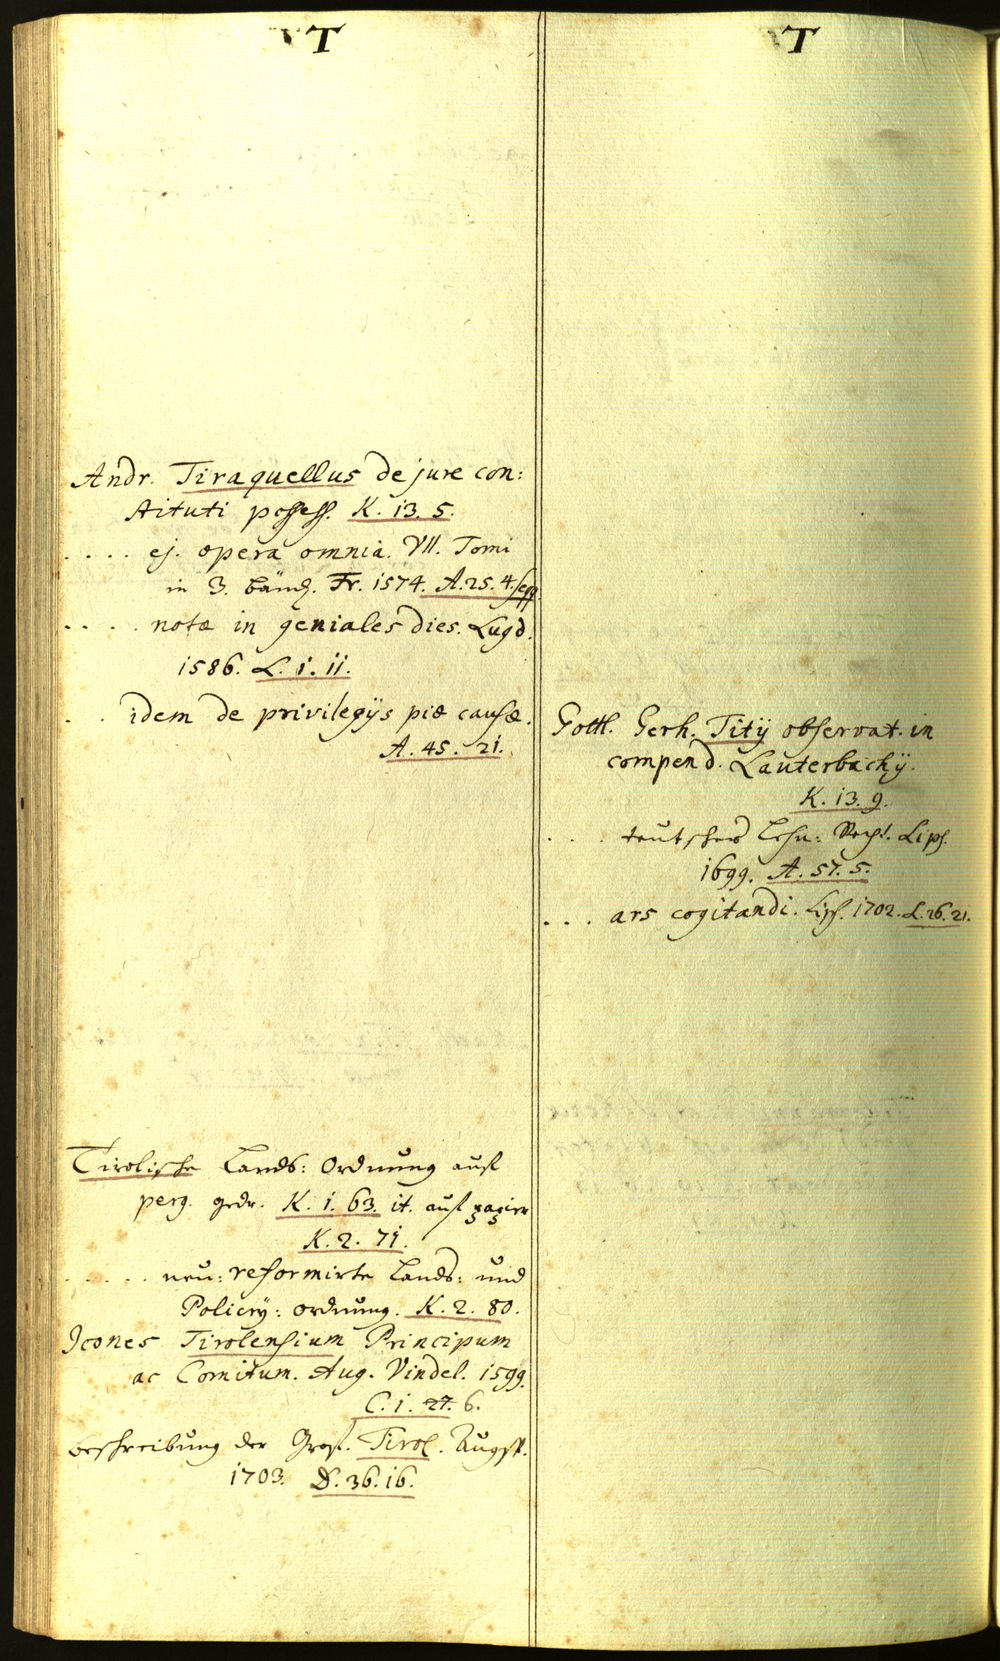 T
Andr. Tiraquellus de jure con:
stituti possess. K. 13. 5.
.... ej. opera omnia. VII. Tomi
in 3. bänd. Fr. 1574. A. 25. 4. seqq.
.... notæ in geniales dies. Lugd.
1586. L. 1. 11.
.. idem de privilegijs piæ causæ.
A. 45. 21.
Tirolische Lands: Ordnung auf
perg. gedr. K. 1. 63. it. auf papier
K. 2. 71.
..... neu: reformirte Lands: und
Policey: ordnung. K. 2. 80.
Icones Tirolensium Principum
ac Comitum. Aug. Vindel. 1599.
C. 1. 27. 6.
beschreibung der Gros. Tirol. Augsp.
1703. D. 36. 16.
T
Gottl. Gerh. Titij observat. in
compend. Lauterbachij.
K. 13. 9.
... teutsches Lehn: Recht. Lips.
1699. A. 57. 5.
... ars cogitandi. Lips. 1702. L. 26. 21.